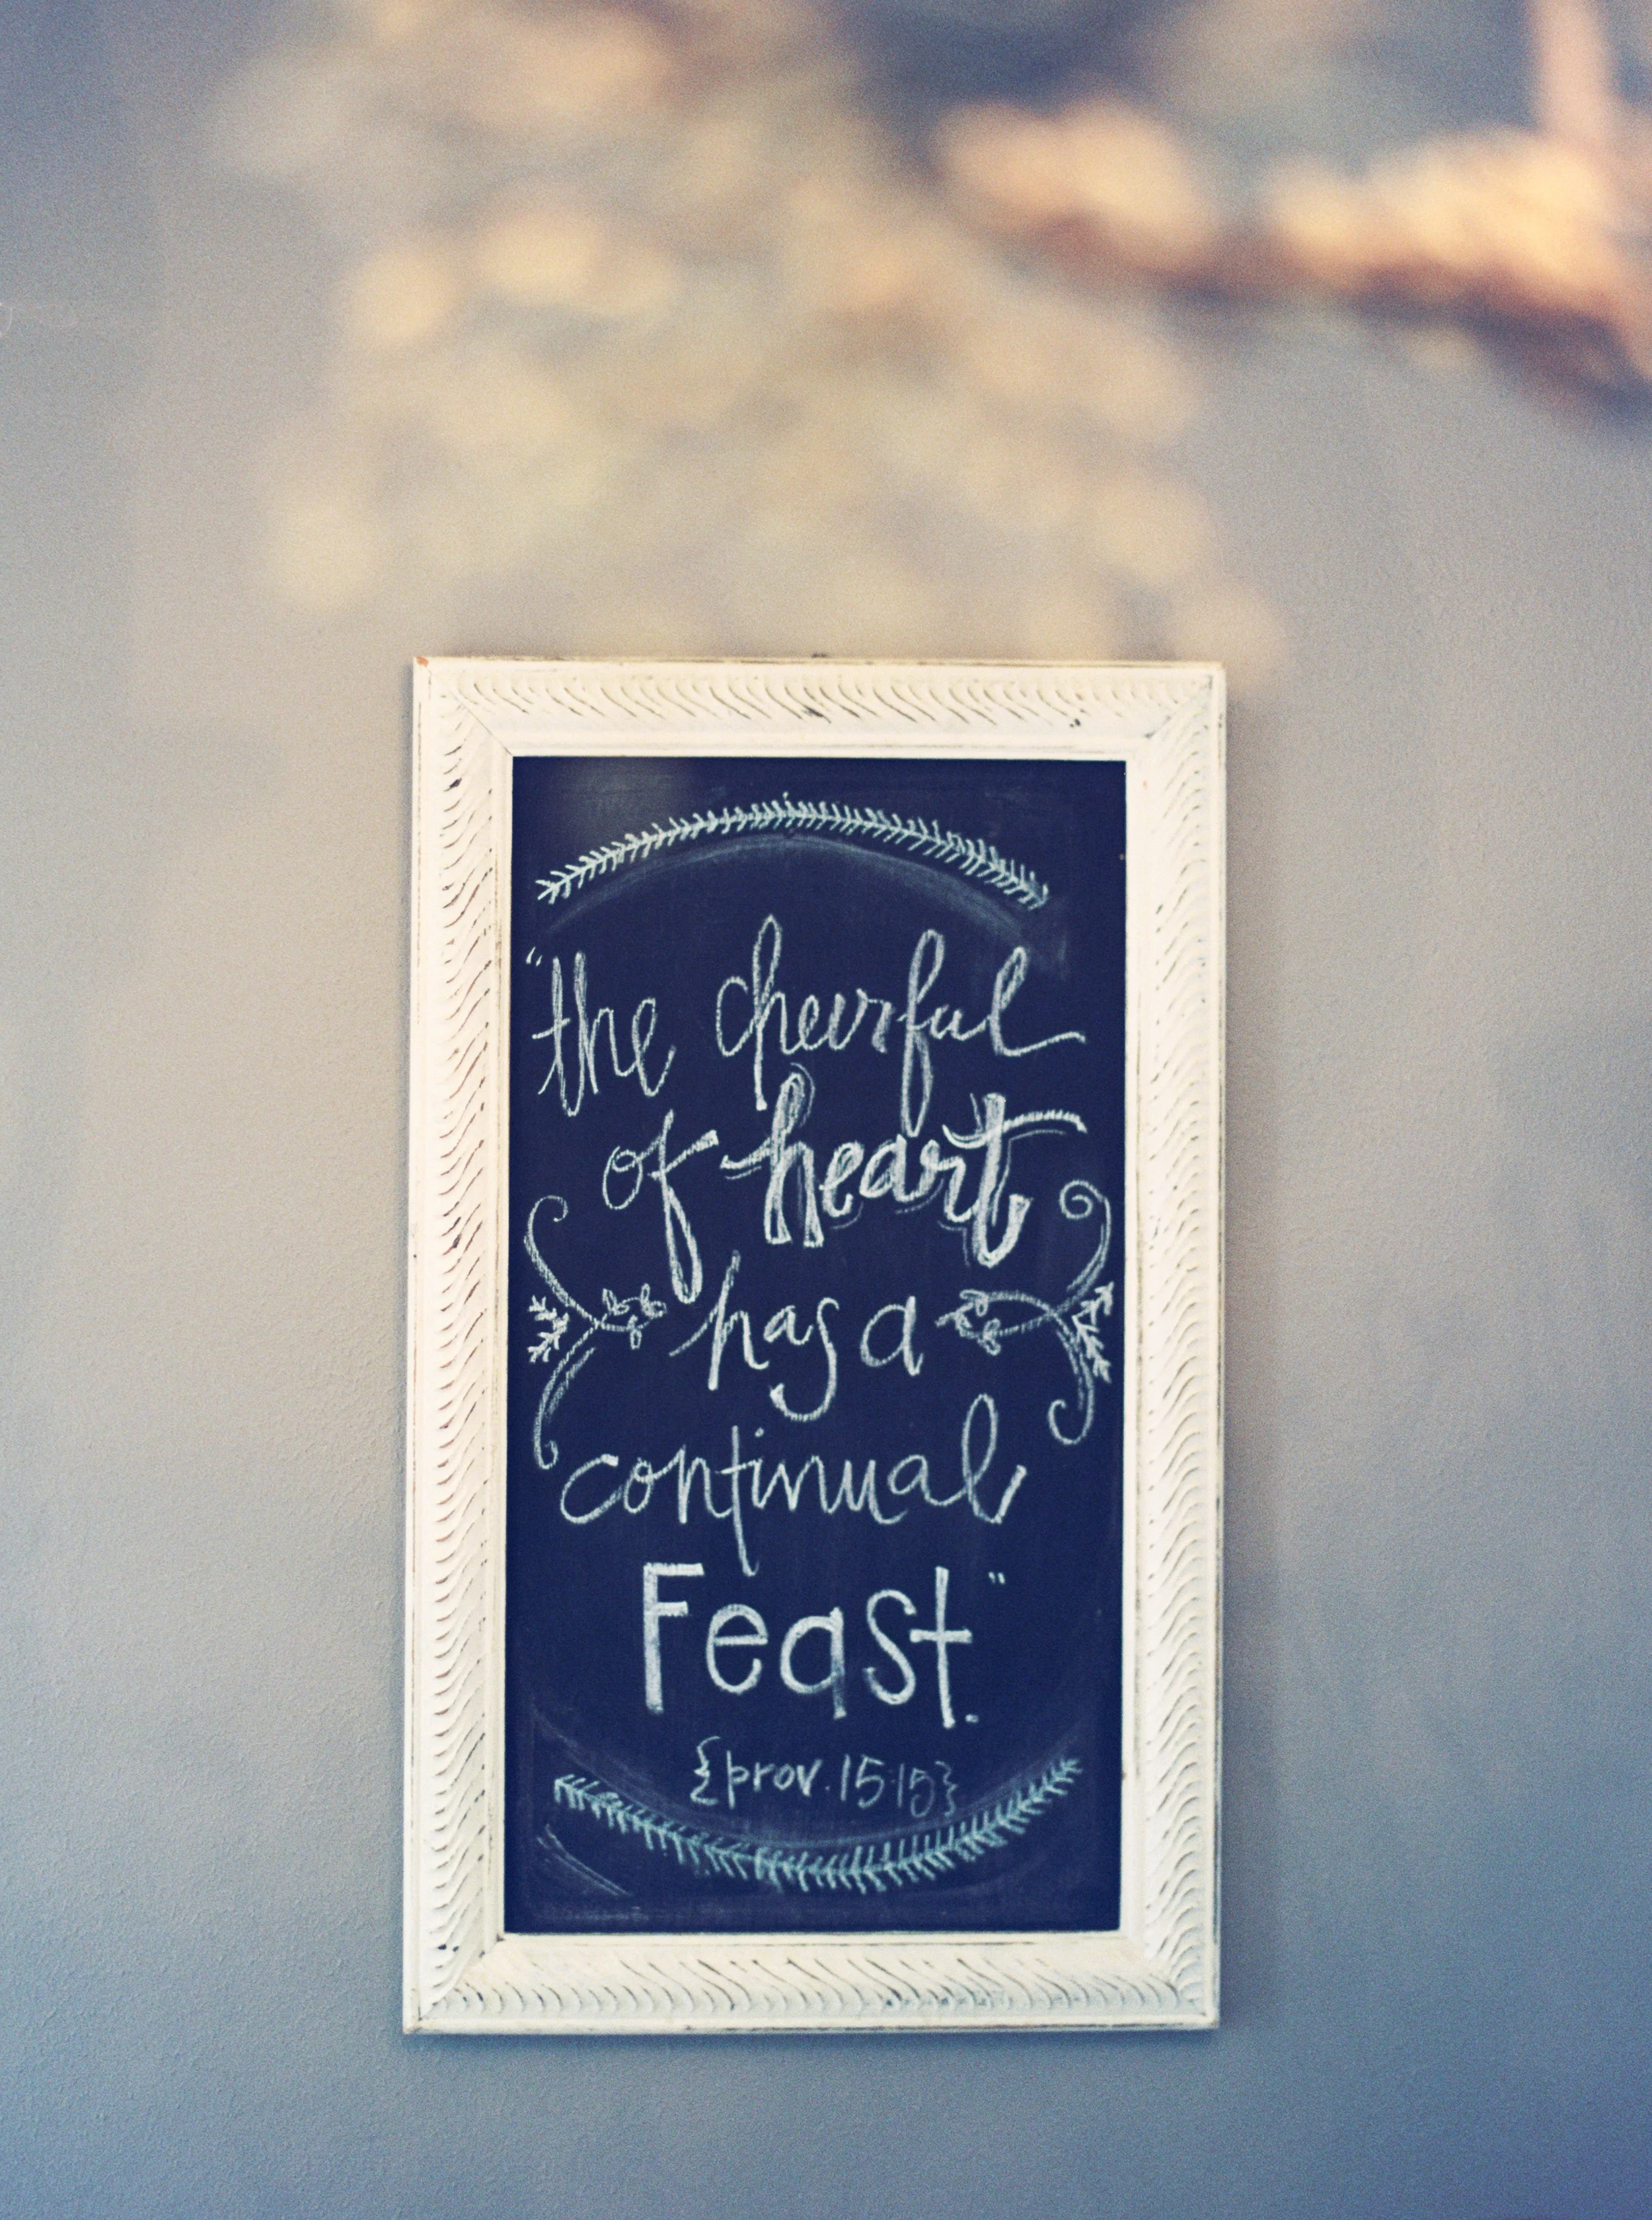 "the cheerful
of heart
has a
continual
Feast."
{prov. 15:15}